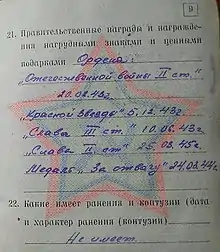 9
21. Правительственные награды и награжде-
ния нагрудными знаками и ценными
подарками Ордена:
„Отечественной войны II ст."
20.02.43г.
„Красной Звезды" 5.12.43г
„Слава III ст." 10.06.43г
„Слава II ст" 25.03.45г.
Медаль „За отвагу" 24.03.44г.
22. Какие имеет ранения и контузии (дата
и характер ранения (контузии)
Не имеет.